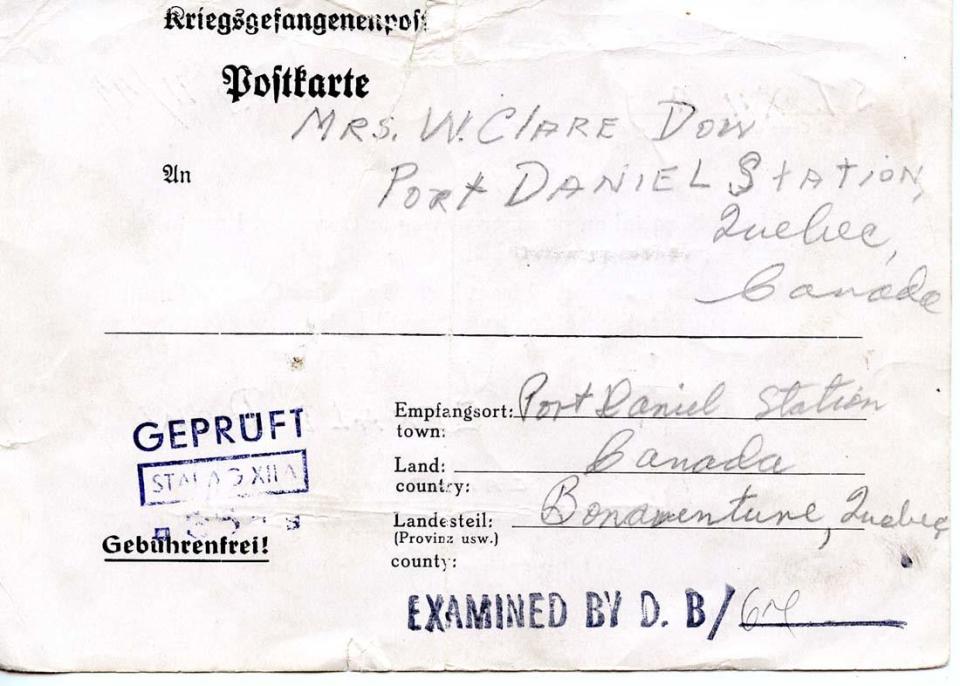 Kriegsgefangenenpost
Postkarte
MRS. W. CLARE DOW
An
PORT DANIEL STATION,
Quebec,
Canada
GEPRÜFT
STALAG XII A
Gebührenfrei!
Empfangsort: Port Daniel Station
town:
Land: Canada
country:
Landesteil: Bonaventure, Quebec
(Provinz usw.)
county:
EXAMINED BY D. B/